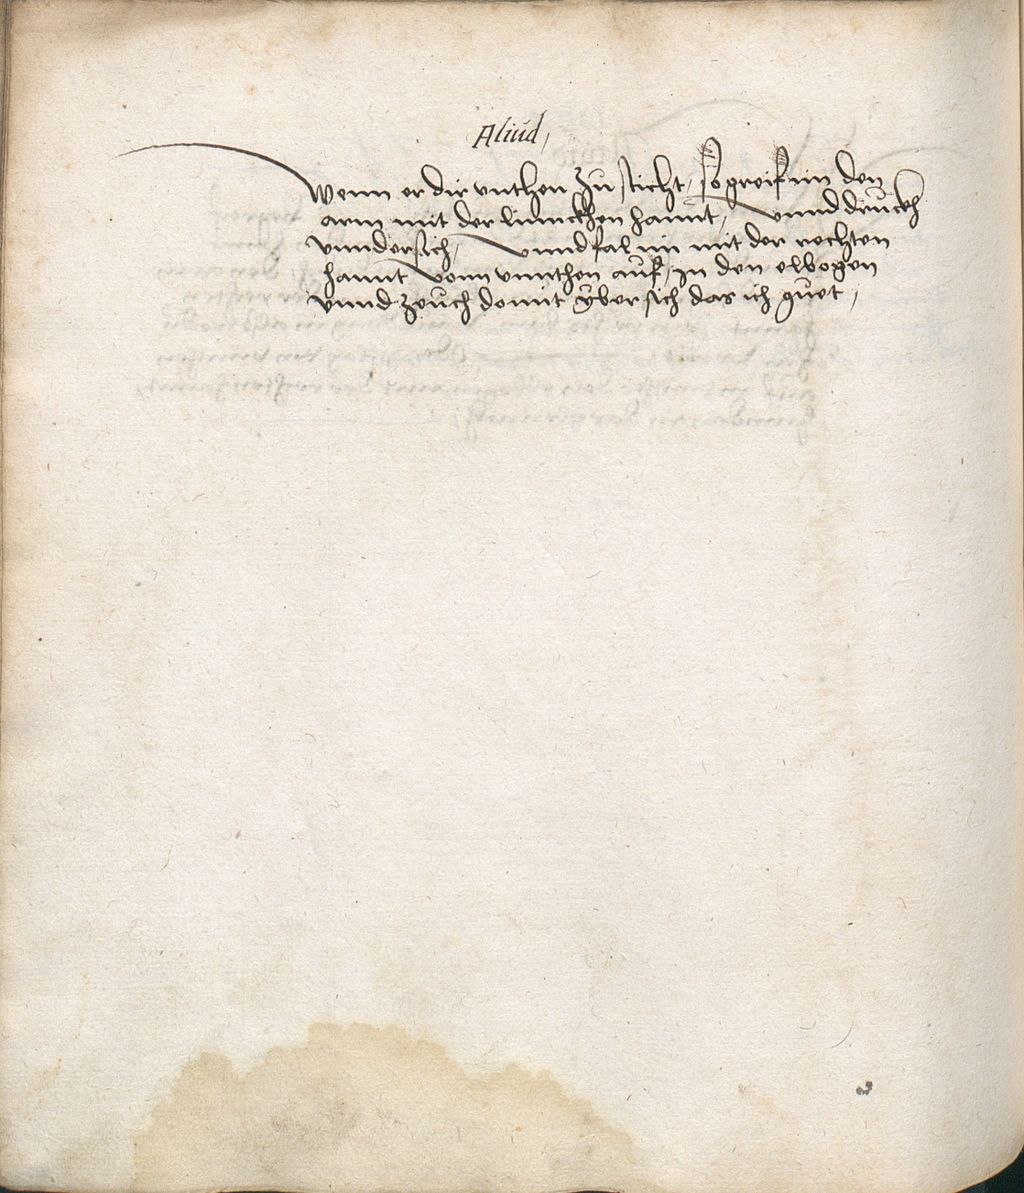 Aliud,
Wenn er dir vnthen zu sticht, so greif im den
arm mit der linnckhen hannt, vnnd druckh
vnndersich, vnnd fal im mit der rechten
hannt vonn vnnthen auf, in den elbogen
vnnd zeuch domit vbersich das ich guet,